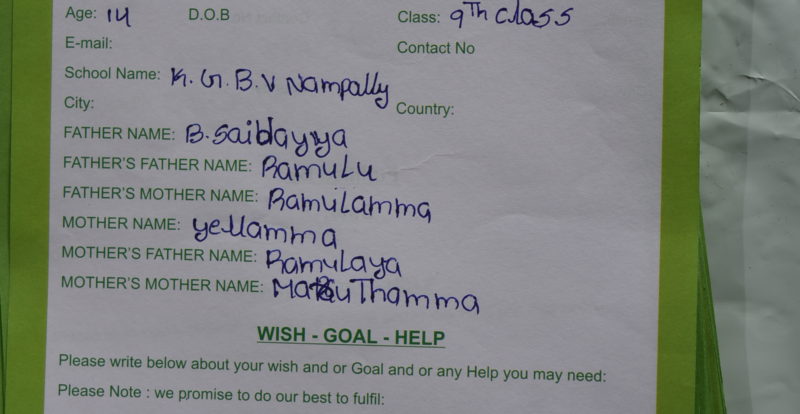 Age: 14 D.O.B Class: 9Th Class
E-mail: Contact No
School Name: K. G. B. V Nampally
City: Country:
FATHER NAME: B. Saidayya
FATHER'S FATHER NAME: Ramulu
FATHER'S MOTHER NAME: Ramulamma
MOTHER NAME: yellamma
MOTHER'S FATHER NAME: Ramulaya
MOTHER'S MOTHER NAME:
WISH - GOAL - HELP
Please write below about your wish and or Goal and or any Help you may need:
Please Note : we promise to do our best to fulfil: